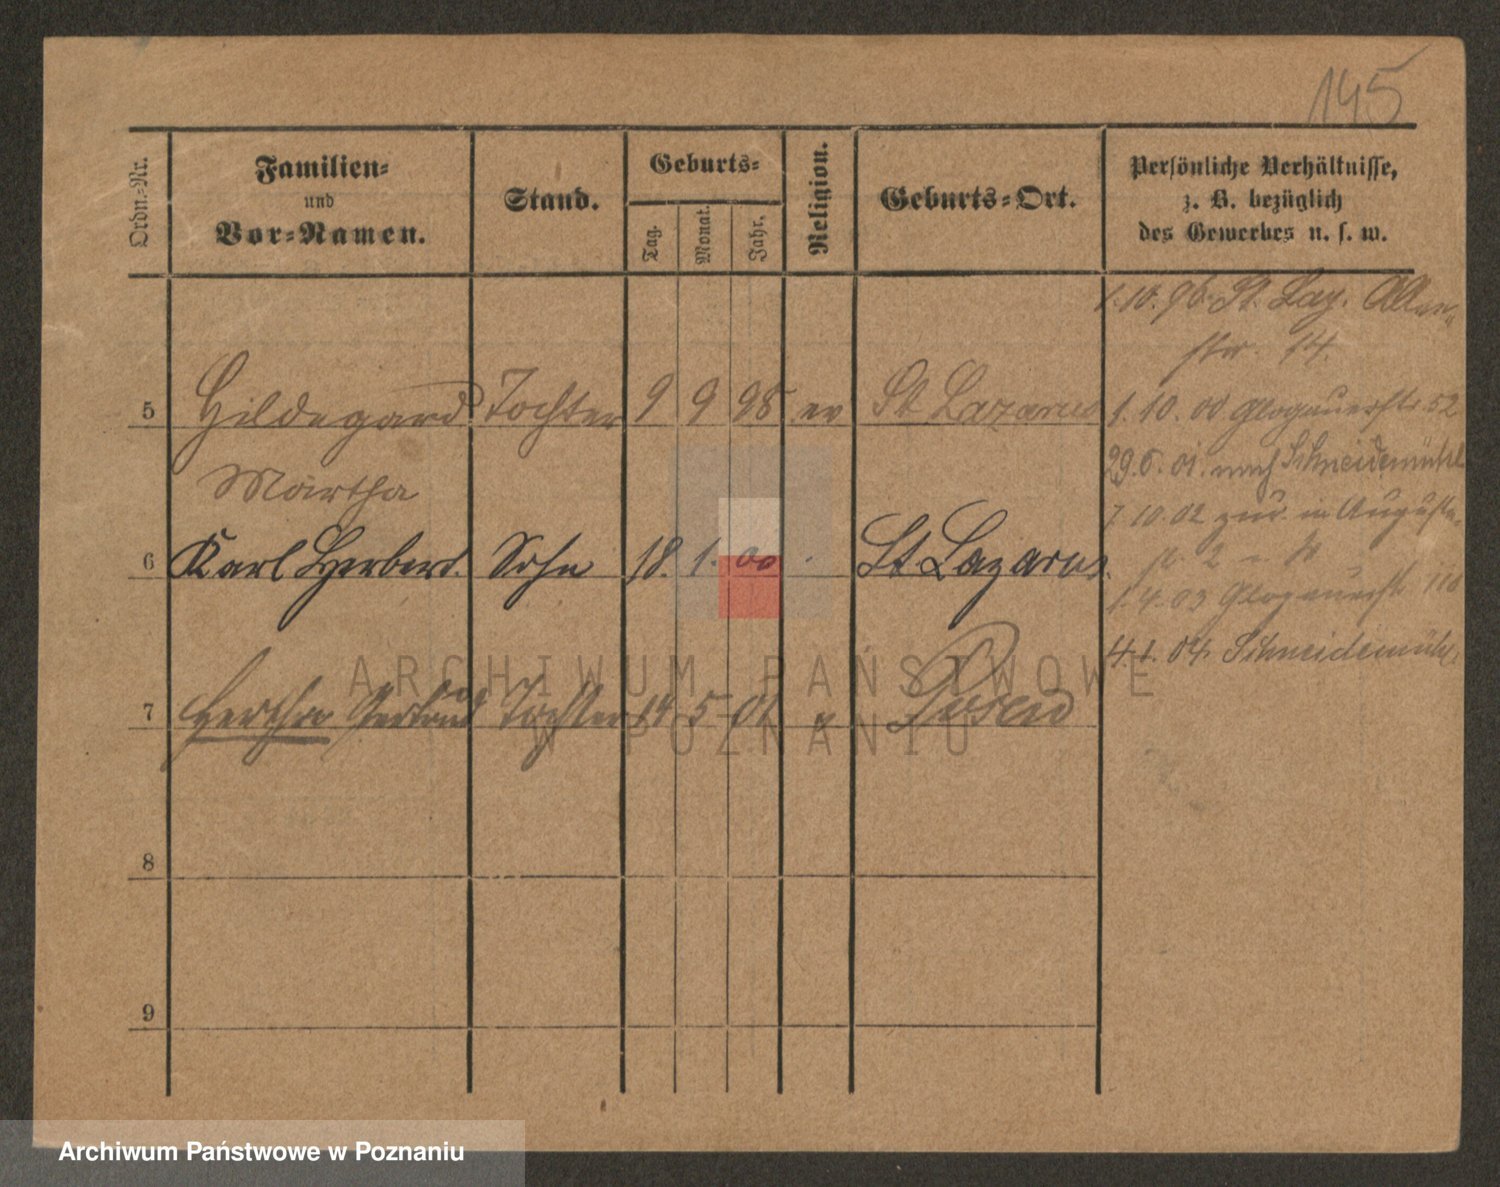 145
Ordn.-Nr.
Familien-
und
Vor-Namen.
Stand.
Geburts-
Tag.
Monat.
Jahr.
Religion.
Geburts-Ort.
Persönliche Verhältnisse,
z. B. bezüglich
des Gewerbes u. s. w.
1.10.96 St. Laz.
str. 14.
5 Hildegard Tochter 9 9 98 ev St Lazarus
1. 10. 00 Glogauerstr. 52
29.5.01. nach Schneidemühl
Martha
7.10.02 zur. in Augusta-
6 Karl Herbert. Sohn 18. 1. 00 St Lazarus.
1.4.03 Glogauerstr. 110
4.1.04. Schneidemühl
7 Hertha Gertrud Tochter 14 5 01 Posen
8
9
ARCHIWUM PAŃSTWOWE
W POZNANIU
Archiwum Państwowe w Poznaniu